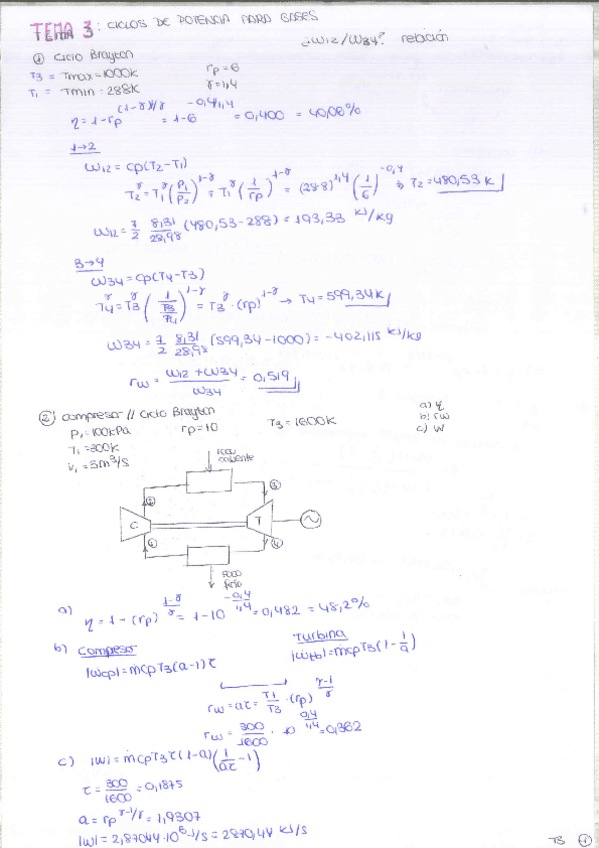 TEMA 3: CICLOS DE POTENCIA PARA GASES
① Ciclo Brayton
¿W12/W34? relación
T3 = Tmax = 1000K rp = 6
T1 = Tmin = 288K γ = 1,4
η = 1 - rp^(1-γ)/γ = 1 - 6^-0,4/1,4 = 0,400 = 40,06%
1→2
W12 = cp(T2-T1)
T2^γ = T1^γ (P1/P2)^1-γ = T1^γ (1/rp)^1-γ = (288)^1,4 (1/6)^-0,4 → T2 = 480,53 K
W12 = 7/2 8,31/28,98 (480,53-288) = 193,33 kJ/kg
3→4
W34 = cp(T4-T3)
T4^γ = T3^γ (1/(P3/P4))^1-γ = T3^γ · (rp)^1-γ → T4 = 599,34K
W34 = 7/2 8,31/28,98 (599,34-1000) = -402,115 kJ/kg
rw = (W12 + W34)/W34 = 0,519
② compresor // Ciclo Brayton
P1 = 100kPa rp = 10 T3 = 1600K
a) η
b) rw
c) W
T1 = 300K
V1 = 5m³/s
FOCO caliente
② ③
C T
① ④
FOCO frío
a) η = 1 - (rp)^(1-γ)/γ = 1 - 10^-0,4/1,4 = 0,482 = 48,2%
b) Compresor
|Wcp| = ṁcpT3(a-1)τ
Turbina
|Wtb| = ṁcpT3(1 - 1/a)
rw = aτ = T1/T3 · (rp)^(γ-1)/γ
rw = 300/1600 · 10^0,4/1,4 = 0,362
c) |W| = ṁcpT3τ(1-a)(1/aτ - 1)
τ = 300/1600 = 0,1875
a = rp^γ-1/γ = 1,9307
|W| = 2,87044·10^6 J/s = 2870,44 kJ/s
T3 ①